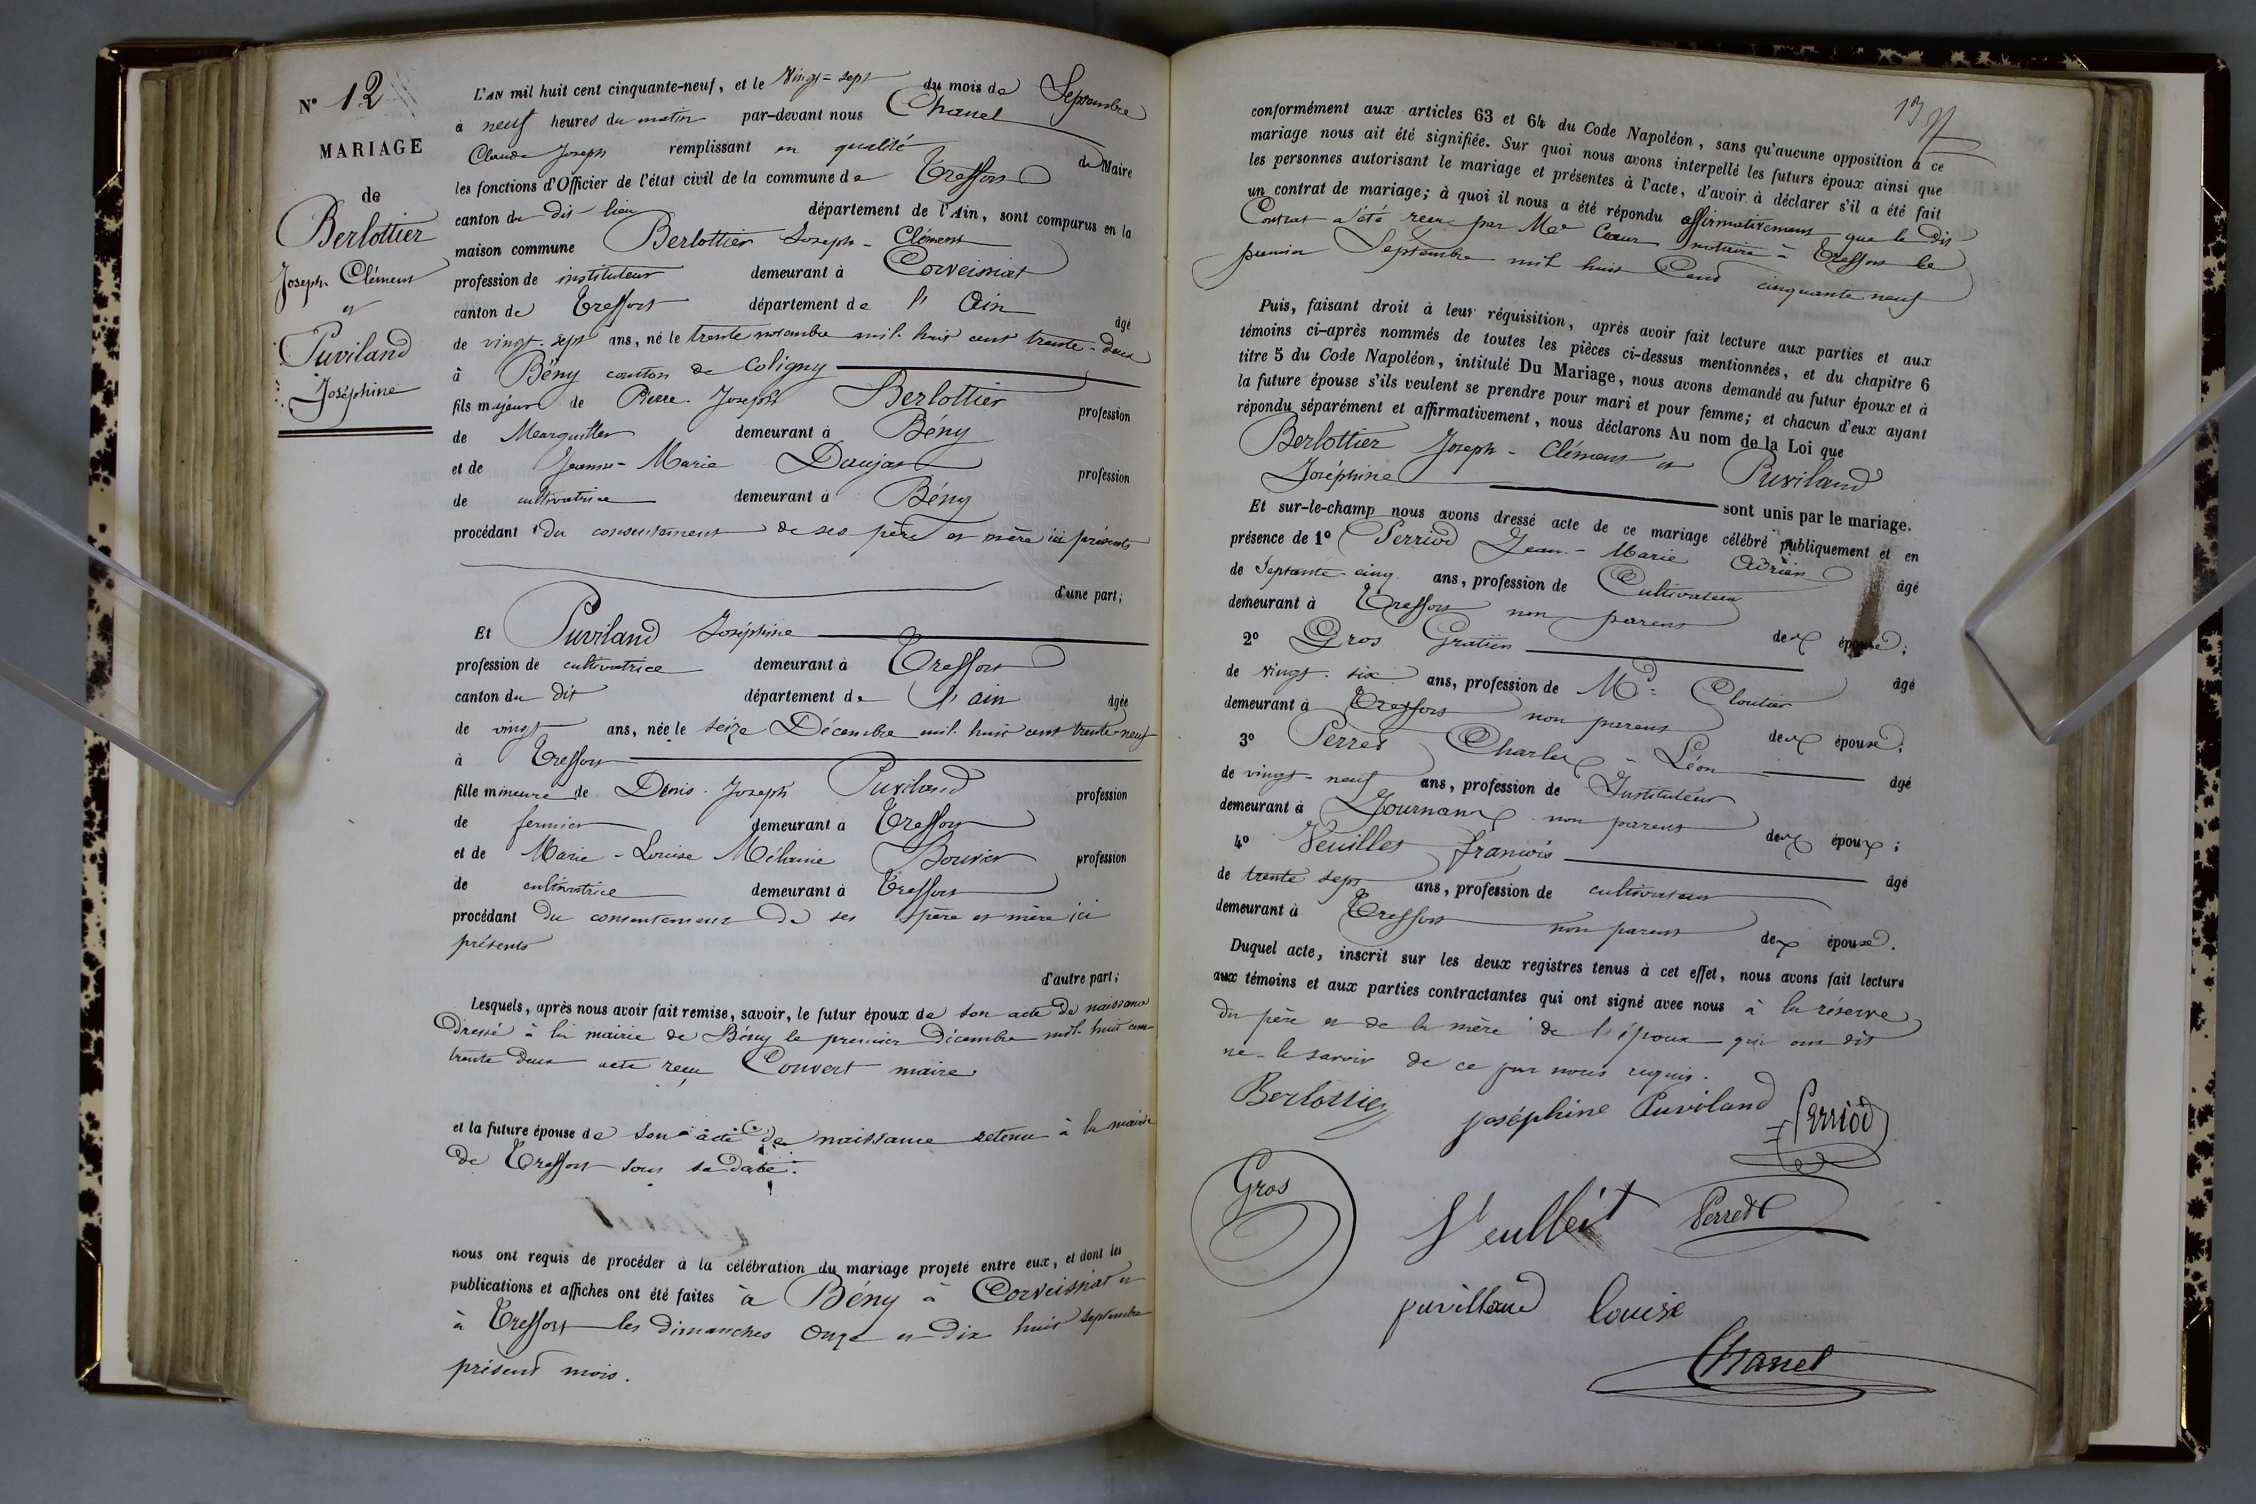 N° 12
MARIAGE
de
Berlottier
Joseph Clément
et
Puviland
Joséphine
L'AN mil huit cent cinquante-neuf, et le Vingt-sept du mois de Septembre
à neuf heures du matin par-devant nous Chanel
Claude Joseph remplissant en qualité de Maire
les fonctions d'Officier de l'état civil de la commune de Treffort
canton du dit lieu département de l'Ain, sont comparus en la
maison commune Berlottier Joseph-Clément
profession de instituteur demeurant à Corveissiat
canton de Treffort département de l'Ain âgé
de vingt-sept ans, né le trente novembre mil huit cent trente-deux
à Bény canton de Coligny
fils majeur de Pierre-Joseph Berlottier profession
de Marguiller demeurant à Bény
et de Jeanne-Marie Daujat profession
de cultivatrice demeurant à Bény
procédant du consentement de ses père et mère ici présents
d'une part;
Et Puviland Joséphine
profession de cultivatrice demeurant à Treffort
canton du dit département de l'ain âgée
de vingt ans, née le seize Décembre mil huit cent trente-neuf
à Treffort
fille mineure de Denis-Joseph Puviland profession
de fermier demeurant à Treffort
et de Marie-Louise Mélanie Bouvier profession
de cultivatrice demeurant à Treffort
procédant du consentement de ses père et mère ici
présents
d'autre part;
Lesquels, après nous avoir fait remise, savoir, le futur époux de son acte de naissance
dressé à la mairie de Bény le premier Décembre mil huit cent
trente deux acte reçu Convert maire
et la future épouse de son acte de naissance retenu à la mairie
de Treffort sous sa date.
nous ont requis de procéder à la célébration du mariage projeté entre eux, et dont les
publications et affiches ont été faites à Bény à Corveissiat et
à Treffort les dimanches onze et dix huit septembre
présent mois.
conformément aux articles 63 et 64 du Code Napoléon, sans qu'aucune opposition à ce
mariage nous ait été signifiée. Sur quoi nous avons interpellé les futurs époux ainsi que
les personnes autorisant le mariage et présentes à l'acte, d'avoir à déclarer s'il a été fait
un contrat de mariage; à quoi il nous a été répondu affirmativement que le dit
Contrat a été reçu par Me Cœur notaire à Treffort le
premier Septembre mil huit Cent cinquante neuf
Puis, faisant droit à leur réquisition, après avoir fait lecture aux parties et aux
témoins ci-après nommés de toutes les pièces ci-dessus mentionnées, et du chapitre 6
titre 5 du Code Napoléon, intitulé Du Mariage, nous avons demandé au futur époux et à
la future épouse s'ils veulent se prendre pour mari et pour femme; et chacun d'eux ayant
répondu séparément et affirmativement, nous déclarons Au nom de la Loi que
Berlottier Joseph-Clément et Puviland
Joséphine sont unis par le mariage.
Et sur-le-champ nous avons dressé acte de ce mariage célébré publiquement et en
présence de 1° Perriod Jean-Marie Adrien âgé
de Septante-cinq ans, profession de Cultivateur
demeurant à Treffort non parent des épouse;
2° Gros Gratien âgé
de vingt-six ans, profession de Md Cloutier
demeurant à Treffort non parent des épouse;
3° Perret Charles-Léon âgé
de vingt-neuf ans, profession de Instituteur
demeurant à Journans non parent des époux;
4° Veuillet François âgé
de trente sept ans, profession de cultivateur
demeurant à Treffort non parent des épouse.
Duquel acte, inscrit sur les deux registres tenus à cet effet, nous avons fait lecture
aux témoins et aux parties contractantes qui ont signé avec nous à la réserve
du père et de la mère de l'époux qui ont dit
ne le savoir de ce par nous requis.
Berlottier
Joséphine Puviland
Perriod
Gros
Veulleit
Perret
puvilland louise
Chanel